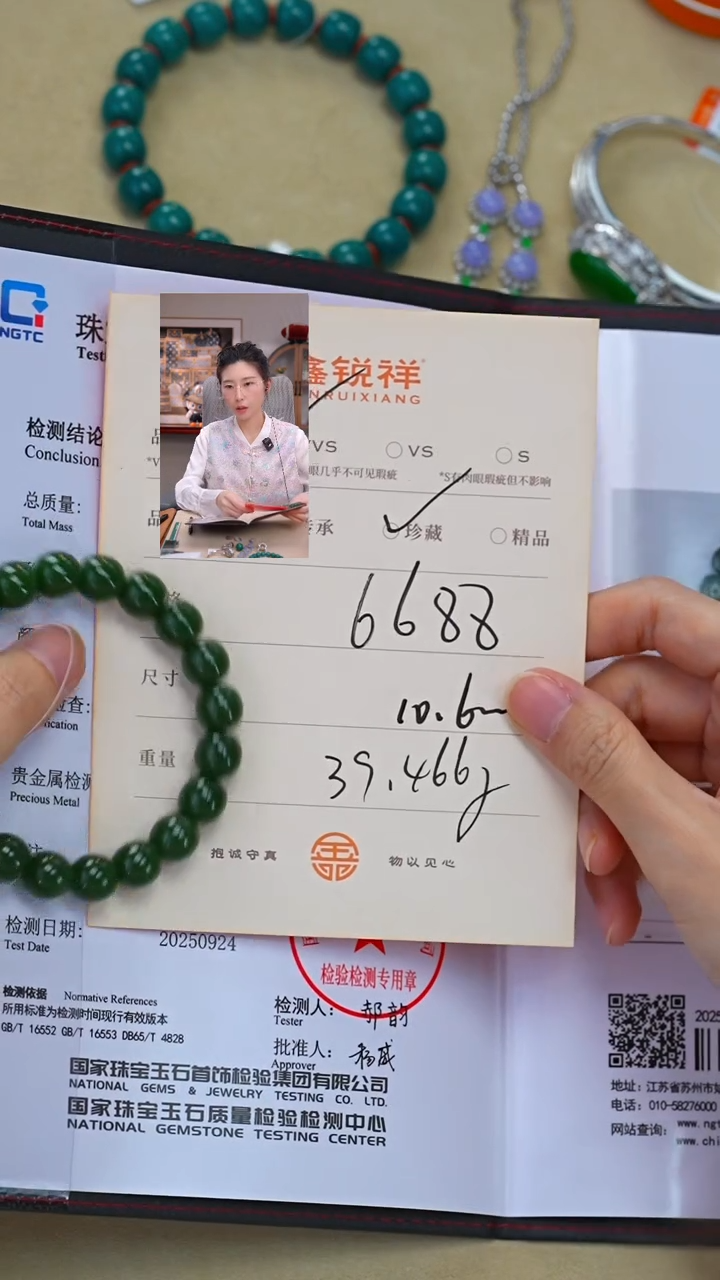 NGTC
珠
Test
检测结论
Conclusion
总质量:
Total Mass
检查:
贵金属检测
Precious Metal
检测日期:
Test Date
20250924
检测依据 Normative References
所用标准为检测时间现行有效版本
GB/T 16552 GB/T 16553 DB65/T 4828
检验检测专用章
检测人:
Tester
郝韵
批准人:
Approver
国家珠宝玉石首饰检验集团有限公司
NATIONAL GEMS & JEWELRY TESTING CO. LTD.
国家珠宝玉石质量检验检测中心
NATIONAL GEMSTONE TESTING CENTER
鑫锐祥
NRUIXIANG
VVS VS S
眼几乎不可见瑕疵 *S有肉眼瑕疵但不影响
承 珍藏 精品
格 6688
尺寸 10.6m
重量 39.466g
抱诚守真 物以见心
2025
地址: 江苏省苏州市
电话: 010-58276000
网站查询: www.ngt
www.chi